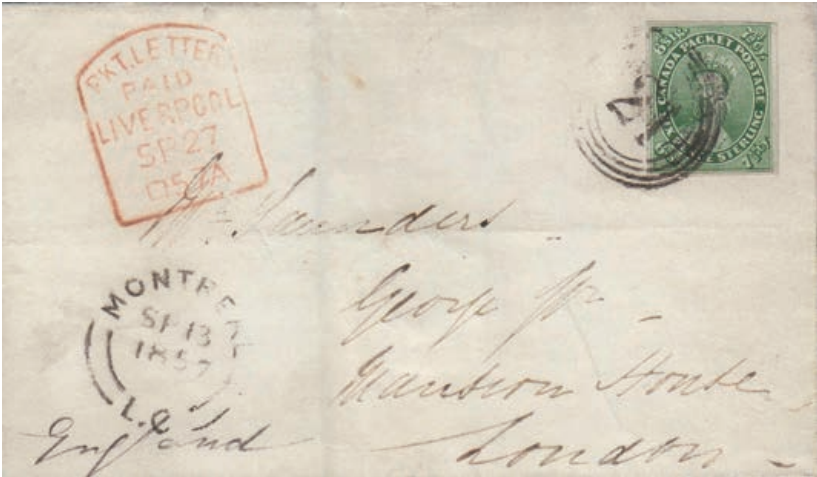 PKT. LETTER
PAID
LIVERPOOL
SP 27
1857
CANADA PACKET POSTAGE
STERLING
Mr. Saunders
George Yd.
Mansion House
London
MONTRE
SP 13
1857
L.C.
England